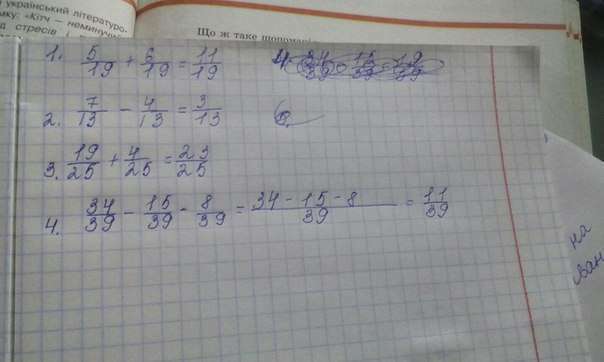 український літературо-
мку: «Кітч – неминучий
стресів і
Що ж таке
1. 5/19 + 6/19 = 11/19
2. 7/13 - 4/13 = 3/13
3. 19/25 + 4/25 = 23/25
4. 34/39 - 15/39 - 8/39 = (34 - 15 - 8)/39 = 11/39
на